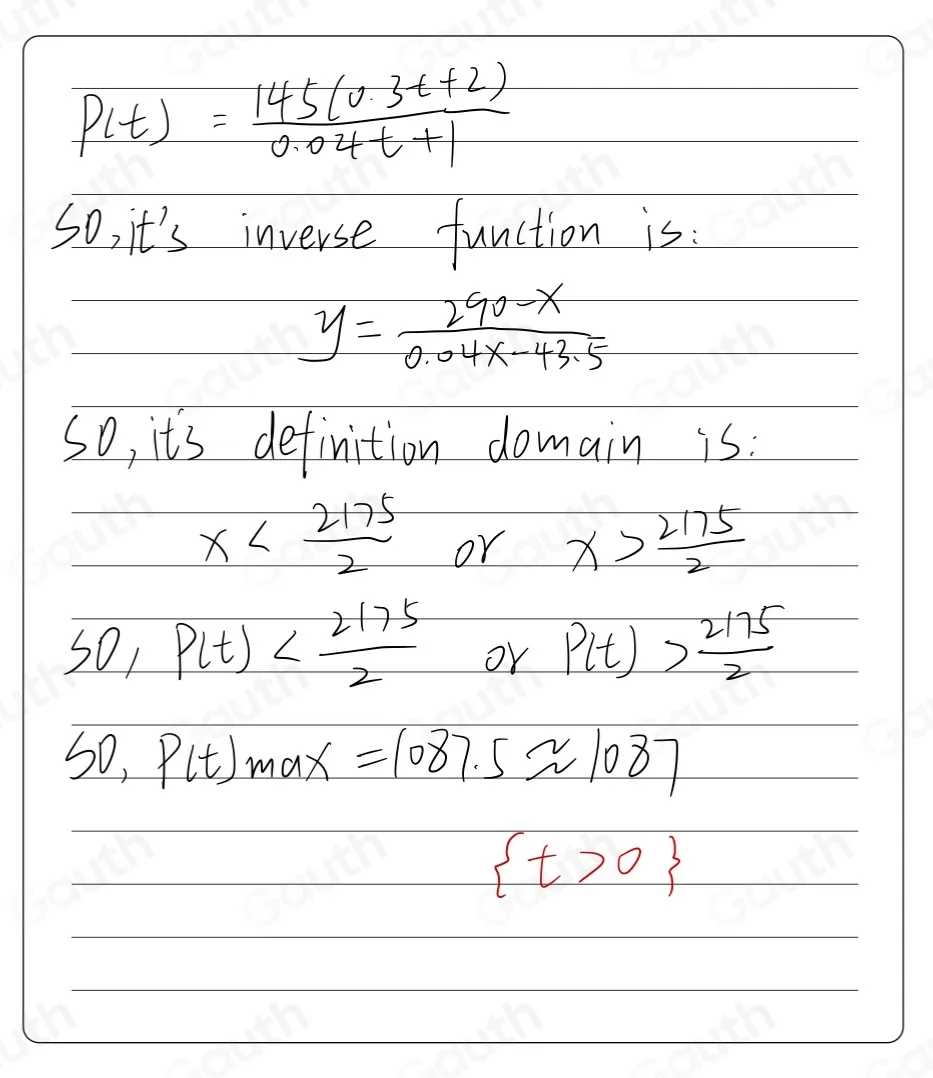 P(t) = 145(0.3t+2) / 0.04t+1
SO, it's inverse function is:
y = 290-x / 0.04x-43.5
SO, it's definition domain is:
x < 2175/2 or x > 2175/2
SO, P(t) < 2175/2 or P(t) > 2175/2
SO, P(t)max = 1087.5 ≈ 1087
{t>0}